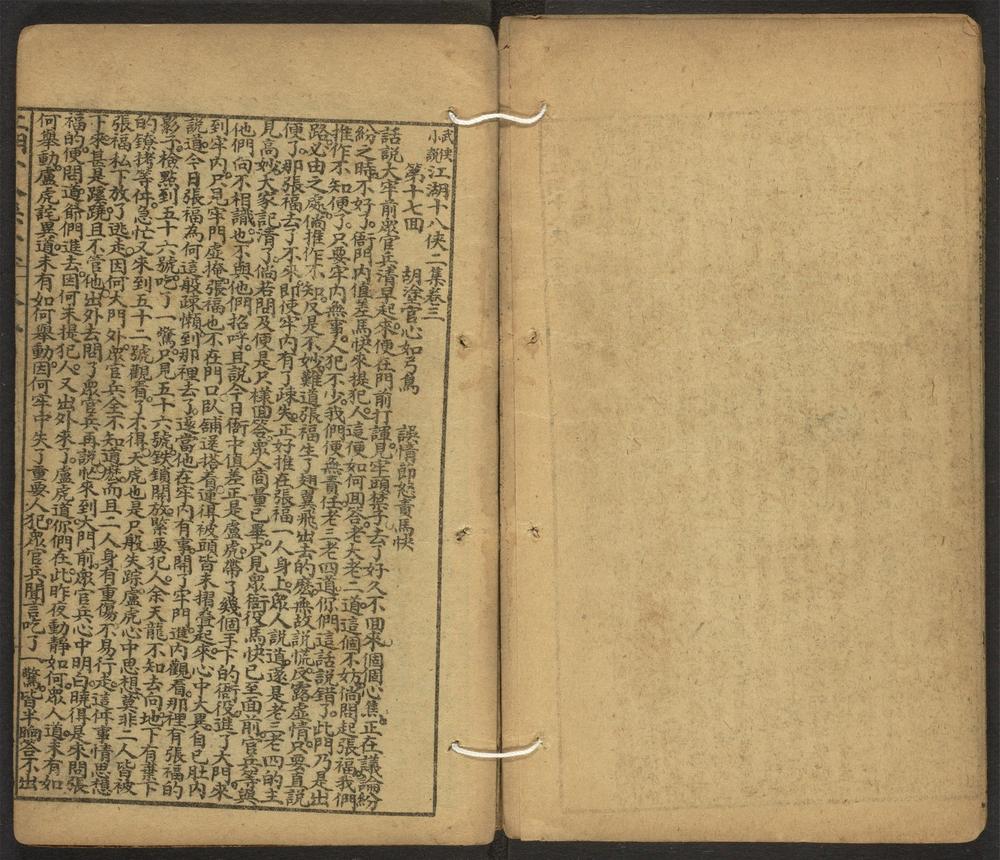 武俠小說江湖十八俠二集卷三
第十七回　胡塗官心如弓鳥　誤情節怒責馬快
話說大牢前眾官兵清早起來便在門前打諢見牢頭禁子去了好久不回來個個心焦正在議論紛
紛之時不好了衙門內值差馬快來提犯人這便如何回答老大老二道這個不妨倘問起張福我們
推作不知便了只要牢內無事人犯不少我們便無責任老三老四道你們這話說錯了此門乃是出
路必由之處倘推作不知反是不妙難道張福生了翅翼飛出去的麽無故說慌反露虛情只要直說
便了那張福去了不來即使牢內有了疎失正好推在張福一人身上眾人說道還是老三老四的主
見高妙大家記清了倘若問及便是只樣回答眾人商量已畢只見眾衙役馬快已至面前官兵等與
他們向不相識也不與他們招呼且說今日衙中值差正是盧虎帶了幾個手下的衙役進了大門來
到牢內只見牢門虛掩張福也不在門口臥鋪逕搭着連得被頭皆未摺叠起來心中大異自己肚內
說道今日張福為何這般疎懶到那裡去了遂當他在牢內有事開了牢門進內觀看那裡有張福的
影子檢點到五十六號吃了一驚只見五十六號鉄鎖開放緊要犯人余天龍不知去向地下有棄下
的鐐拷等件急忙又來到五十二號觀看了不得天虎也是只般失踪盧虎心中思想莫非二人皆被
張福私下放了逃走因何大門外眾官兵全不知道麽而且二人身有重傷不易行走這件事情思想
下來甚是蹊蹺且不管他出外去問了眾官兵再說忙來到大門前眾官兵心中明白曉得是來問張
福的便問道爺們進去因何未提犯人又出外來了盧虎道你們在此昨夜動靜如何眾人道未有如
何舉動盧虎詫異道未有如何舉動因何牢中失了重要人犯眾官兵聞言吃了一驚皆半晌答不出